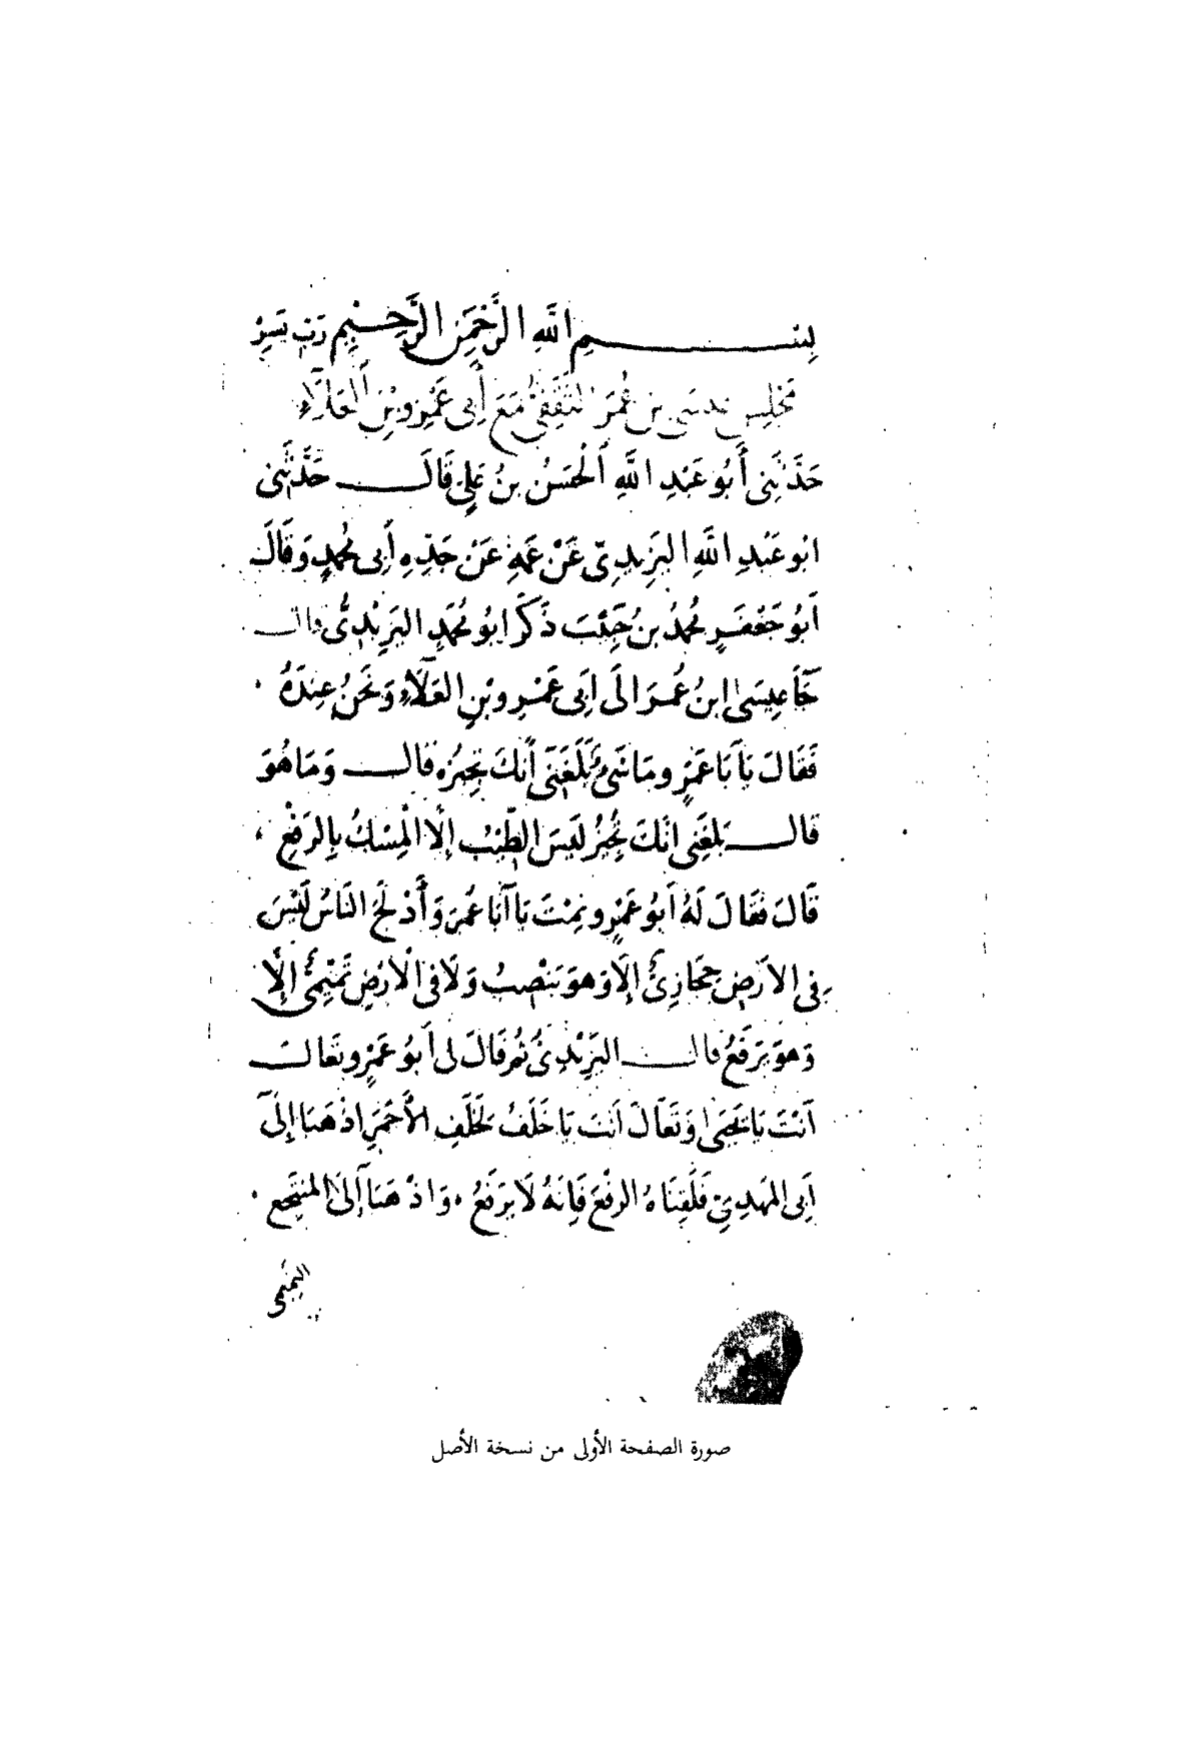 بِسْمِ اللَّهِ الرَّحْمَنِ الرَّحِيمِ رَبِّ يَسِّرْ
مَجْلِس عِيسَى بن عُمَرَ الثَّقَفِىِّ مَعَ أَبِى عَمْرِو بْنِ الْعَلَآءِ
حَدَّثَنِى أَبُو عَبْدِ اللَّهِ الْحَسَنُ بنُ عَلِىٍّ قَالَ حَدَّثَنِى
ابُو عَبْدِ اللَّهِ اليَزِيدِىّ عَنْ عَمِّهِ عَنْ جَدِّهِ أَبِى مُحَمَّدٍ وَقَالَ
أَبُو جَعْفَرٍ مُحَمَّدُ بنُ حَبِيْبَ ذَكَرَ ابُو مُحَمَّدٍ اليَزِيْدِىُّ قال
جَآءَ عِيسَى ابنُ عُمَرَ الَى أَبِى عَمْرِو بْنِ العَلَآءِ وَنَحْنُ عِنْدَهُ
فَقَالَ يَا أَبَا عَمْرٍو مَا شَىْءٌ بَلَغَنِى أَنَّكَ تُجِيزُهُ قال وَمَا هُوَ
قال بَلَغَنِى انَّكَ تُجِيْزُ لَيْسَ الطِّيْبُ إِلَّا الْمِسْكُ بِالرَفْعِ
قَالَ فَقَالَ لَهُ أَبُو عَمْرٍو نِمْتَ يَا أَبَا عُمَرَ وَأَدْلَجَ النَاسُ لَيْسَ
فِى الارَضِ حِجَازِىٌّ إِلَّا وَهوَ يَنْصِبُ وَلَا فِى الْأَرْضِ تَمِيْمِىٌّ إِلَّا
وَهوَ يَرْفَعُ قال اليَزِيْدِىُّ ثُمَّ قَالَ لِى أَبُو عَمْرٍو تَعَالَ
أَنْتَ يَا يَحْيَى وَتَعَالَ أَنتَ يَا خَلَفُ لِخَلَفِ الأَحْمَرِ اذْهَبَا إِلَى
أَبِى المَهدِىِّ فَلَقِّنَاهُ الرفْعَ فَإِنَّهُ لَا يَرْفَعُ وَاذْهَبَا إِلَى المنتَجِعِ
التميمى
صورة الصفحة الأولى من نسخة الأصل